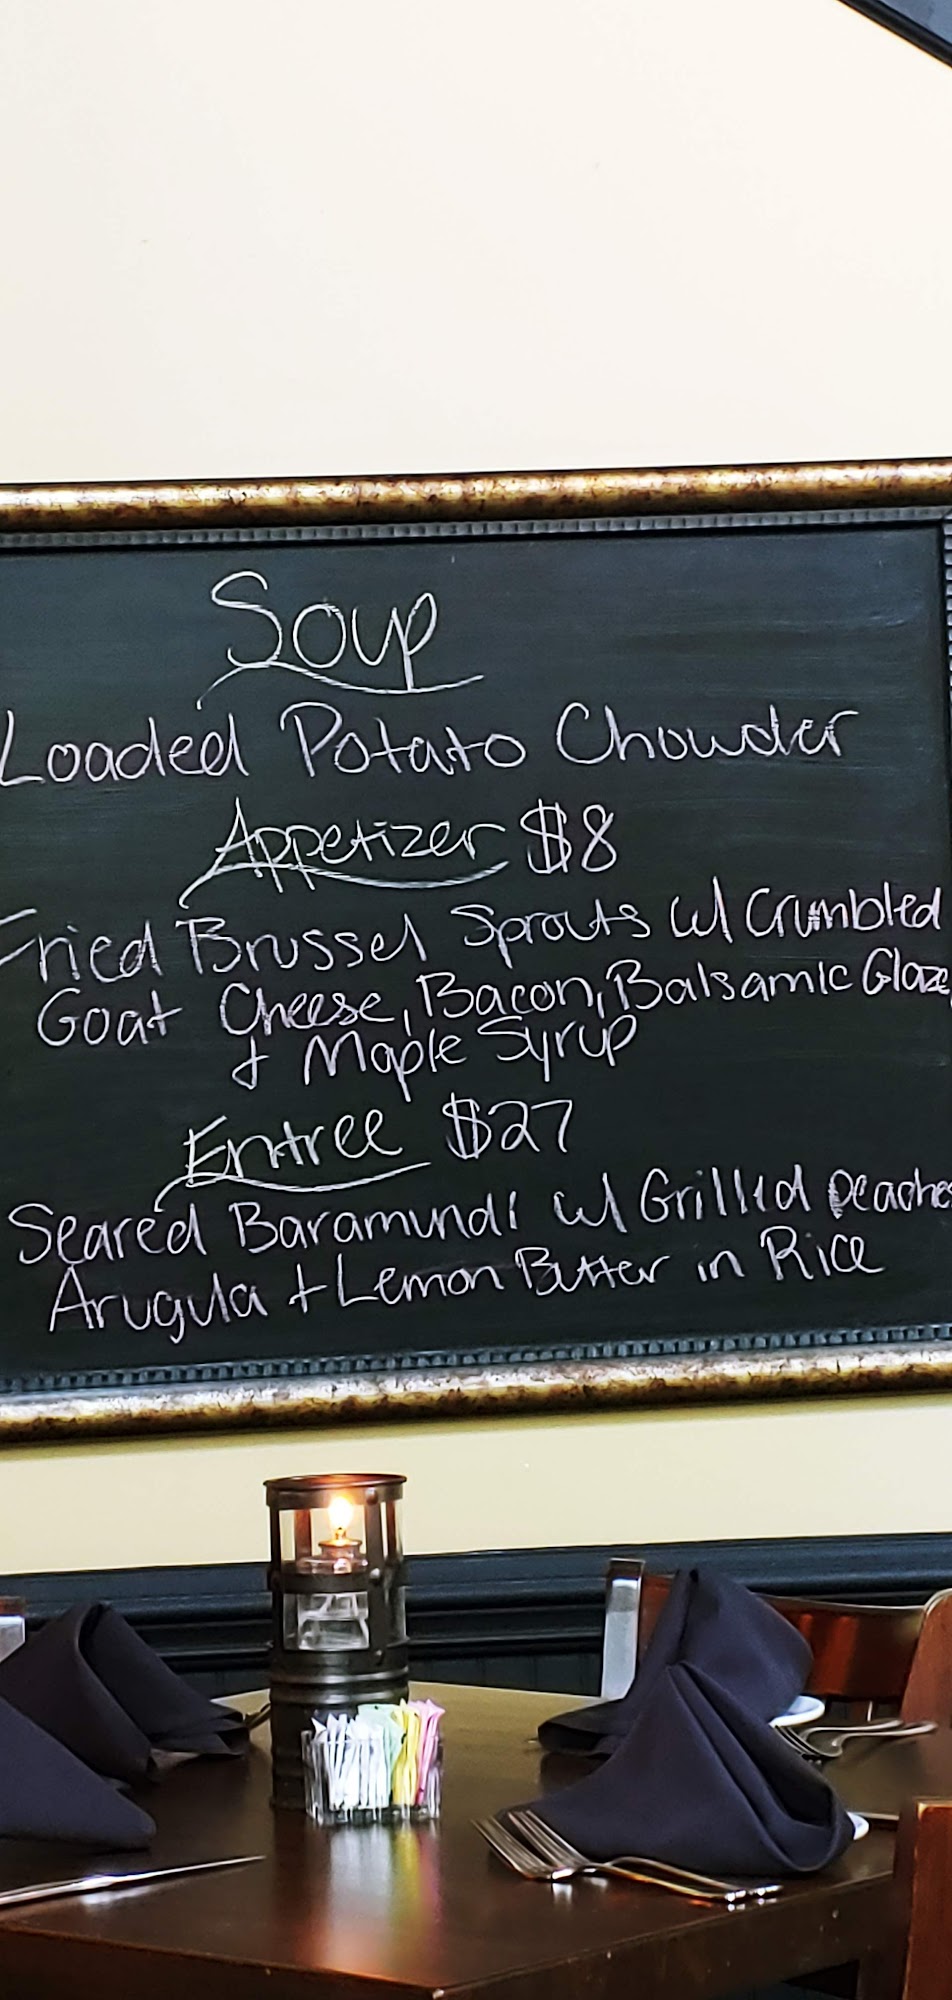 Soup
Loaded Potato Chowder
Appetizer $8
Fried Brussel Sprouts w/ Crumbled
Goat Cheese, Bacon, Balsamic Glaze
+ Maple Syrup
Entree $27
Seared Baramundi w/ Grilled Peaches
Arugula + Lemon Butter in Rice